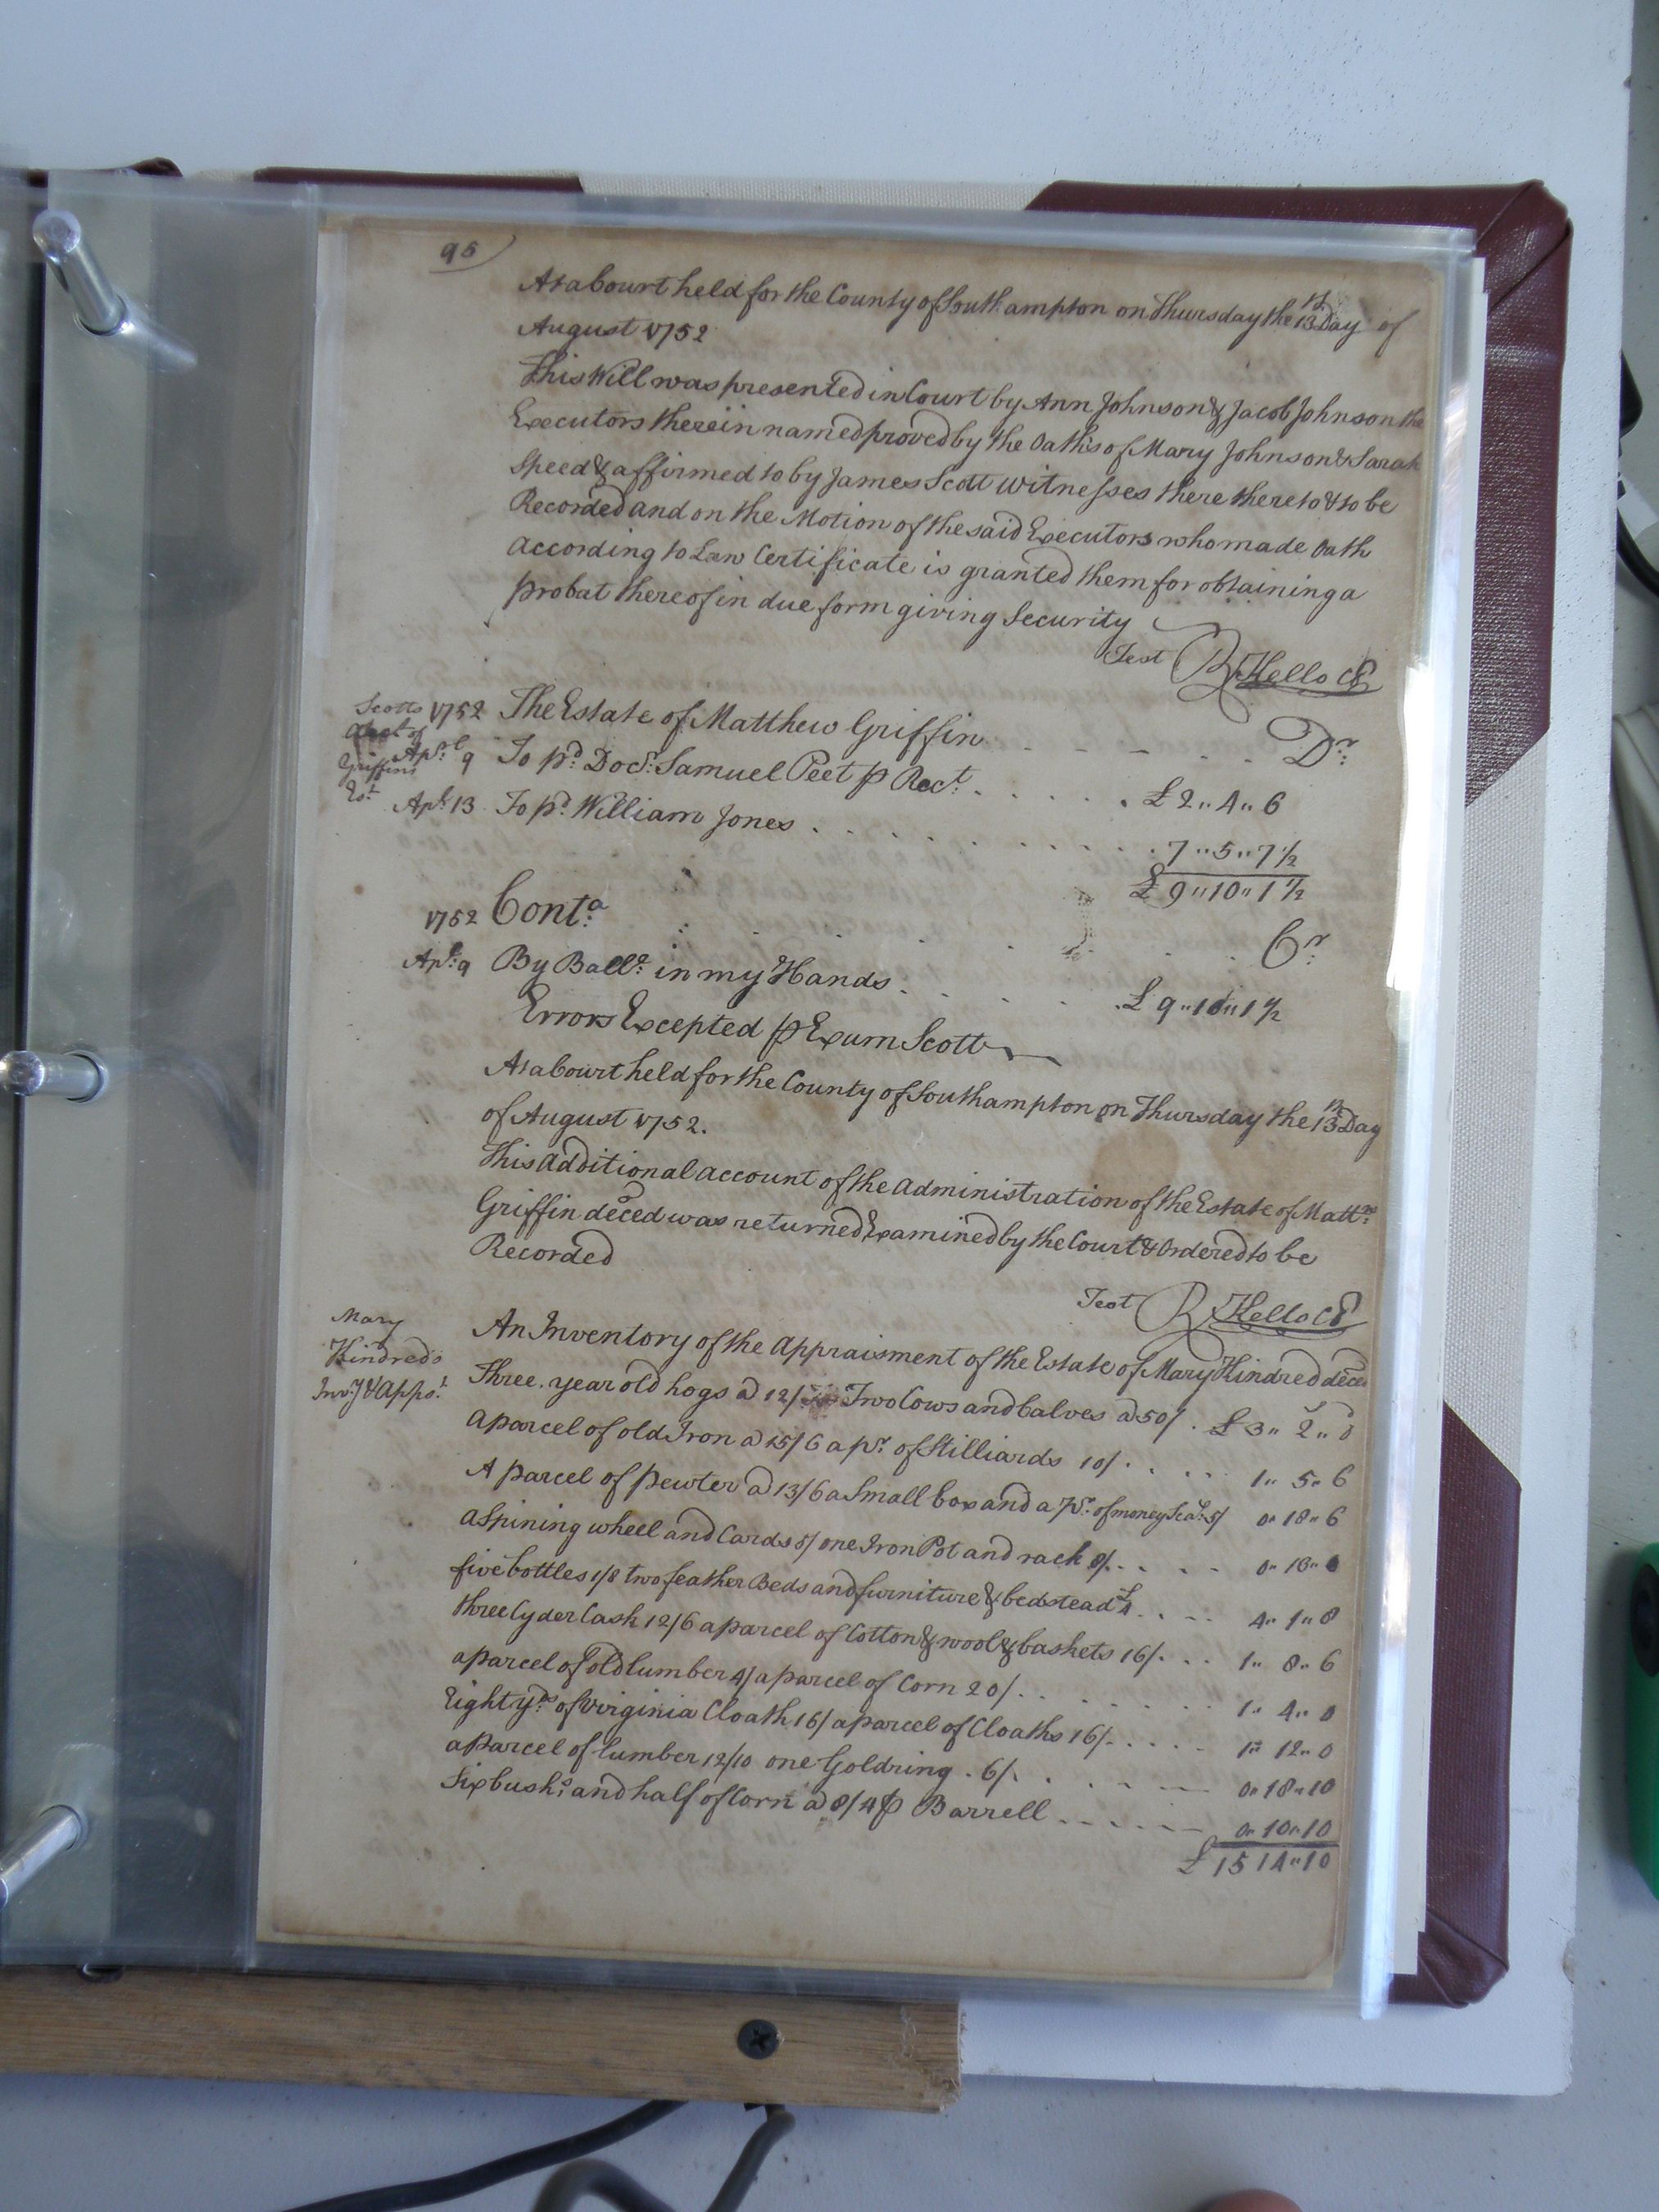 95
At a Court held for the County of Southampton on Thursday the 13th Day of
August 1752
This Will was presented in Court by Ann Johnson & Jacob Johnson the
Executors therein named proved by the Oaths of Mary Johnson & Sarah
Speed & affirmed to by James Scott witnesses there thereto & to be
Recorded and on the Motion of the said Executors who made Oath
According to Law Certificate is granted them for obtaining a
probat thereof in due form giving Security
Test R Kello CC
Scotts 1752 The Estate of Matthew Griffin Dr.
Acct. of
Griffins
Est.
Aprl. 9 To pd. Docr. Samuel Peet p Rect. £ 2 .. 4 .. 6
Apl. 13 To pd. William Jones 7 .. 5 .. 7 1/2
£ 9 .. 10 .. 1 1/2
1752 Conta. Cr.
Apl. 9 By Balla. in my Hands £ 9 .. 10 .. 1 1/2
Errors Excepted p Exum Scott
At a Court held for the County of Southampton on Thursday the 13th Day
of August 1752.
This Additional account of the Administration of the Estate of Mattw.
Griffin deced was returned Examined by the Court & Ordered to be
Recorded
Test R Kello CC
Mary
Kindred's
Invy. & Apps.t
An Inventory of the Appraisment of the Estate of Mary Kindred deced
Three year old hogs a 12/ Two Cows and Calves a 50/ . £ 3 .. 2 .. 0
A parcel of old Iron a 15/6 a pr. of Stilliards 10/ 1 .. 5 .. 6
A parcel of pewter a 13/6 a Small box and a pr. of money Scals. 5/ 0 .. 18 .. 6
A Spining wheel and Cards 5/ one Iron Pot and rack 8/ 0 .. 13 .. 0
five bottles 1/8 two feather Beds and furniture & bedstead £4 4 .. 1 .. 8
three Cyder Cask 12/6 a parcel of Cotton & wool & baskets 16/ 1 .. 8 .. 6
a parcel of old lumber 4/ a parcel of Corn 20/ 1 .. 4 .. 0
Eight yds. of Virginia Cloath 16/ a parcel of Cloaths 16/ 1 .. 12 .. 0
a parcel of lumber 12/10 one Gold ring . 6/ 0 .. 18 .. 10
Six bushs. and half of Corn a 8/4 p Barrell 0 .. 10 .. 10
£ 15 14 .. 10